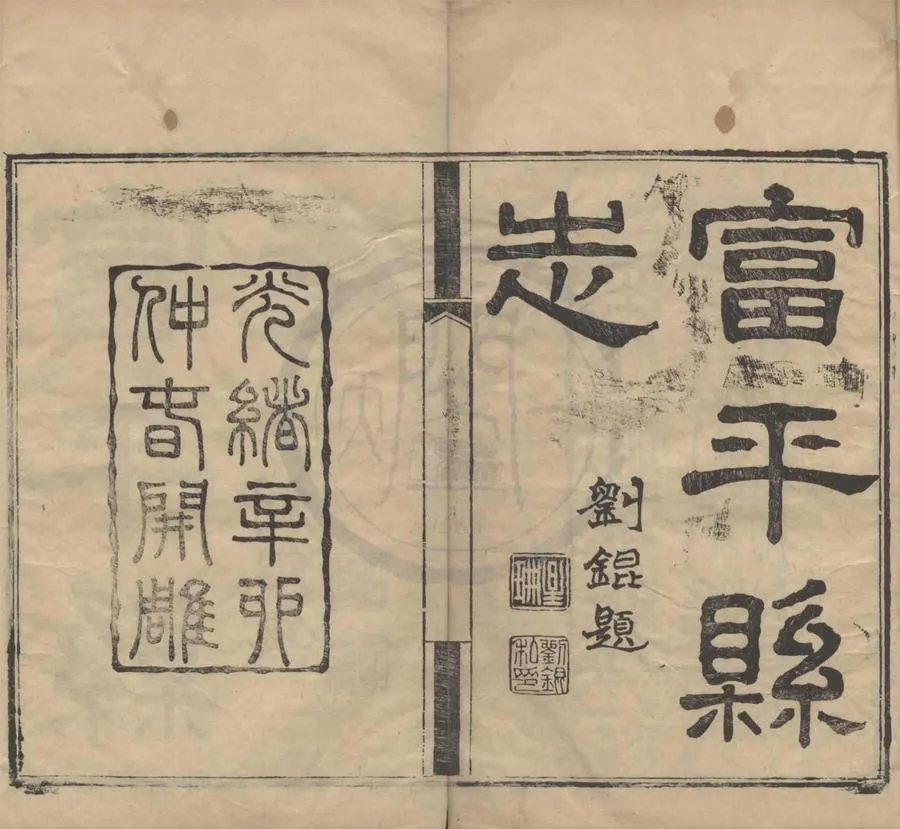 富平縣
志
劉錕題
劉錕
私印
光緒辛卯
仲春開雕